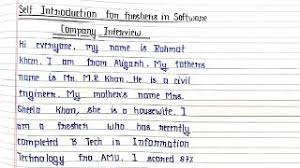 Self Introduction for freshers in Software
Company Interview
Hi everyone, my name is Rahmat
Khan. I am from Aligarh. My fathers
name is Mr. M.R Khan. He is a civil
engineer. My mother's name Mrs.
Sheela Khan, she is a housewife. I
am a fresher who has recently
completed B Tech in Information
Technology fro AMU. I scored 87%